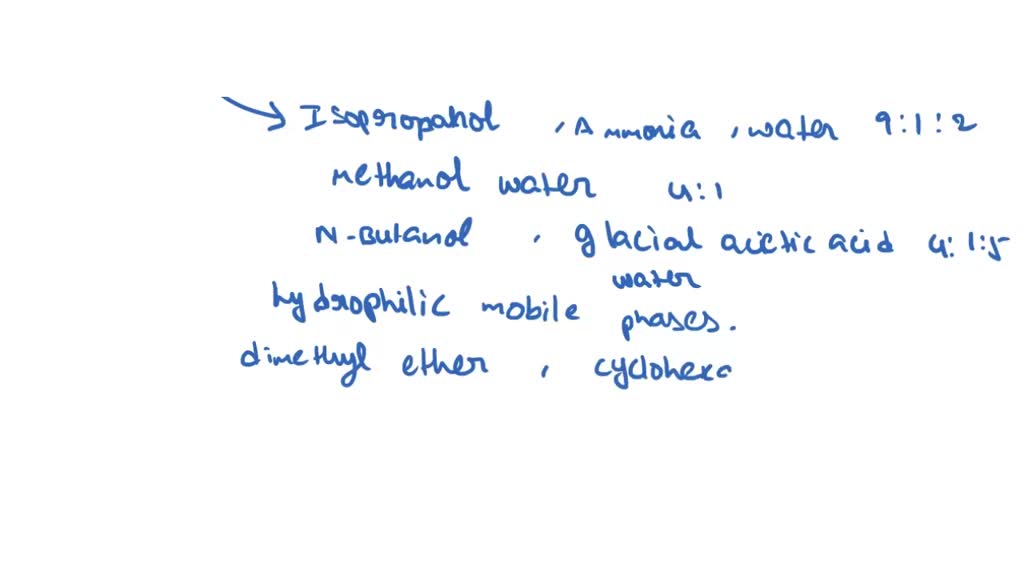 Isopropanol , Ammonia , water 9:1:2
methanol water 4:1
N-Butanol , glacial acictic acid 4:1:5
water
hydrophilic mobile phases.
dimethyl ether , cyclohexa